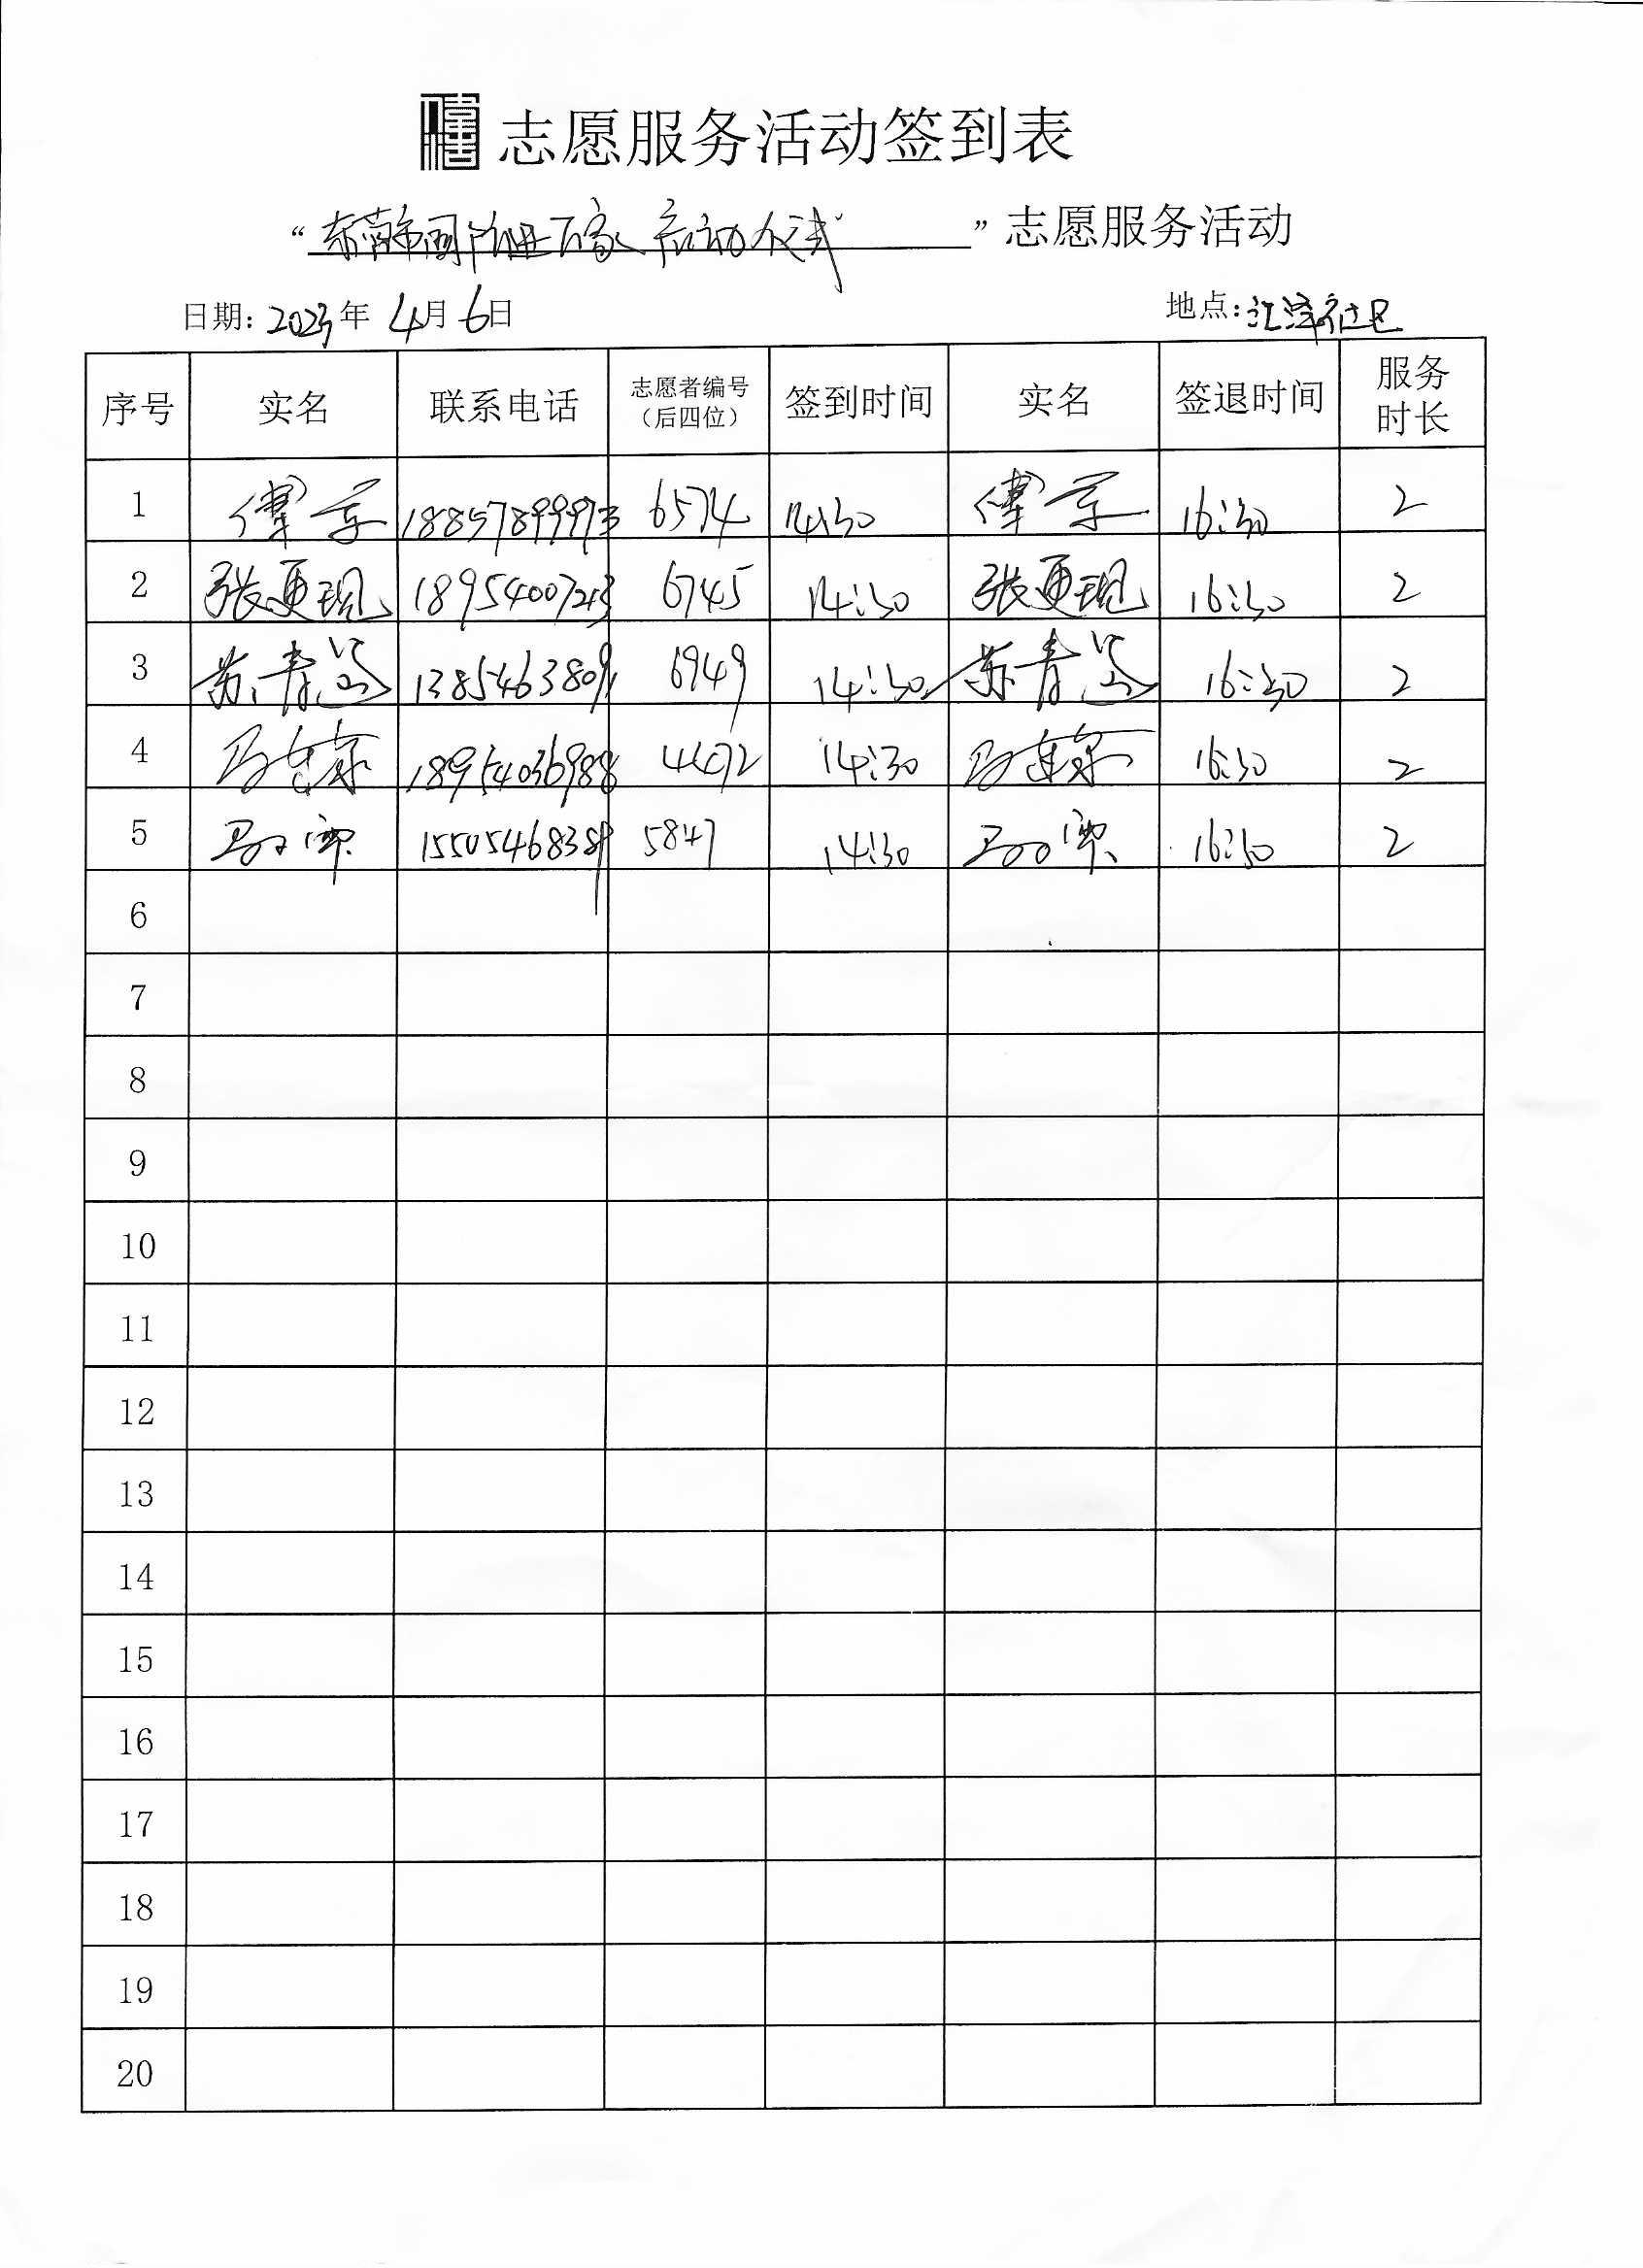 志愿服务活动签到表
“ 启动仪式 ”志愿服务活动
日期: 2023年 4月 6日 地点: 汇泽社区
序号 实名 联系电话 志愿者编号（后四位） 签到时间 实名 签退时间 服务时长
1 傅 18857899973 6574 14:30 傅 16:30 2
2 张更现 6745 14:30 张更现 16:30 2
3 苏青 6949 14:30 苏青 16:30 2
4 马建荣 18954036988 14:30 马建荣 16:30 2
5 5847 14:30 16:30 2
6
7
8
9
10
11
12
13
14
15
16
17
18
19
20